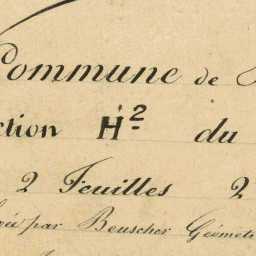 Commune de
ction H² du
2 Feuilles 2
par Beuscher Géomèt